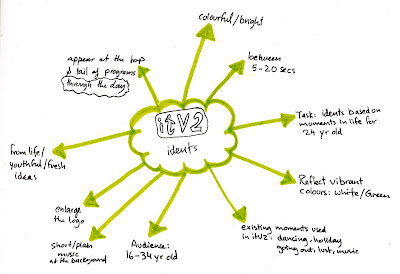 colourful/bright
appear at the top
& tail of programs
through the day
between
5-20 secs
itV2
idents
Task: idents based on
moments in life for
24 yr old
from life/
youthful/fresh
ideas
Reflect vibrant
colours: white/Green
enlarge
the logo
existing moments used
in itv2: dancing, holiday
going out, lust, music
Audience:
16-34 yr old
short/plain
music
at the background